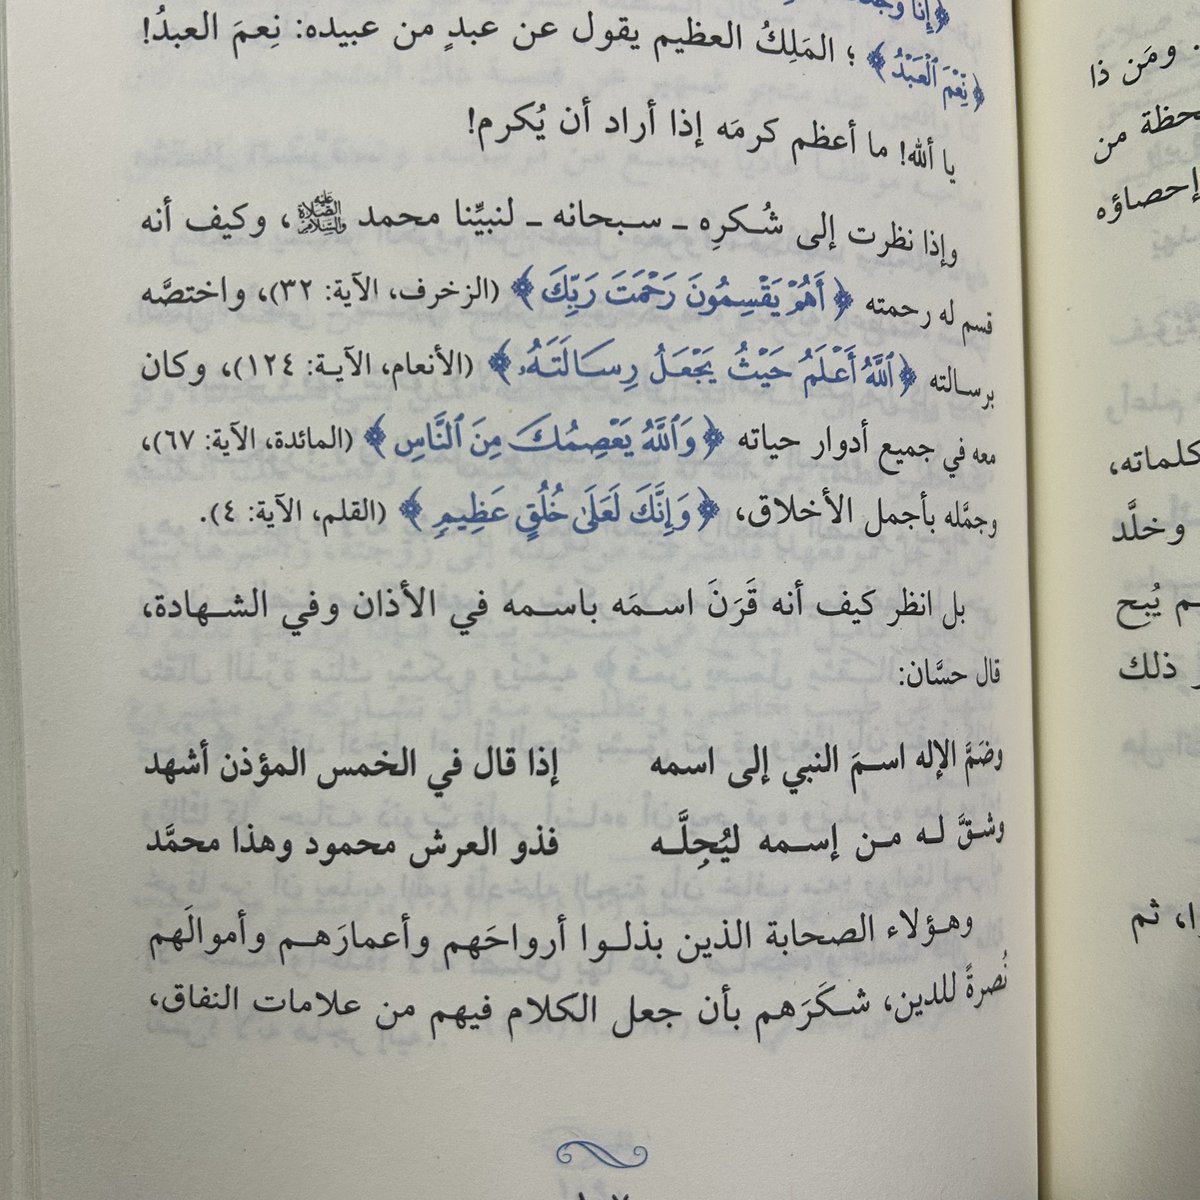 ﴿إِنَّا
﴿نِعْمَ ٱلْعَبْدُ﴾ ؛ المَلِكُ العظيم يقول عن عبدٍ من عبيده: نِعمَ العبدُ!
يا ألله! ما أعظم كرمَه إذا أراد أن يُكرم!
وإذا نظرت إلى شُكرِه ـ سبحانه ـ لنبيِّنا محمد عليه الصلاة والسلام، وكيف أنه
قسم له رحمته ﴿أَهُمْ يَقْسِمُونَ رَحْمَتَ رَبِّكَ﴾ (الزخرف، الآية: ٣٢)، واختصَّه
برسالته ﴿ٱللَّهُ أَعْلَمُ حَيْثُ يَجْعَلُ رِسَالَتَهُۥ﴾ (الأنعام، الآية: ١٢٤)، وكان
معه في جميع أدوار حياته ﴿وَٱللَّهُ يَعْصِمُكَ مِنَ ٱلنَّاسِ﴾ (المائدة، الآية: ٦٧)،
وجمَّله بأجمل الأخلاق، ﴿وَإِنَّكَ لَعَلَىٰ خُلُقٍ عَظِيمٍ﴾ (القلم، الآية: ٤).
بل انظر كيف أنه قَرَنَ اسمَه باسمه في الأذان وفي الشهادة،
قال حسَّان:
وضَمَّ الإله اسمَ النبي إلى اسمه إذا قال في الخمس المؤذن أشهد
وشقَّ له من إسمه ليُجِلَّه فذو العرش محمود وهذا محمَّد
وهؤلاء الصحابة الذين بذلوا أرواحَهم وأعمارَهم وأموالَهم
نُصرةً للدين، شكَرَهم بأن جعل الكلام فيهم من علامات النفاق،
ومَن ذا
من
إحصاؤه
كلماته،
وخلَّد
يُبح
ذلك
ثم